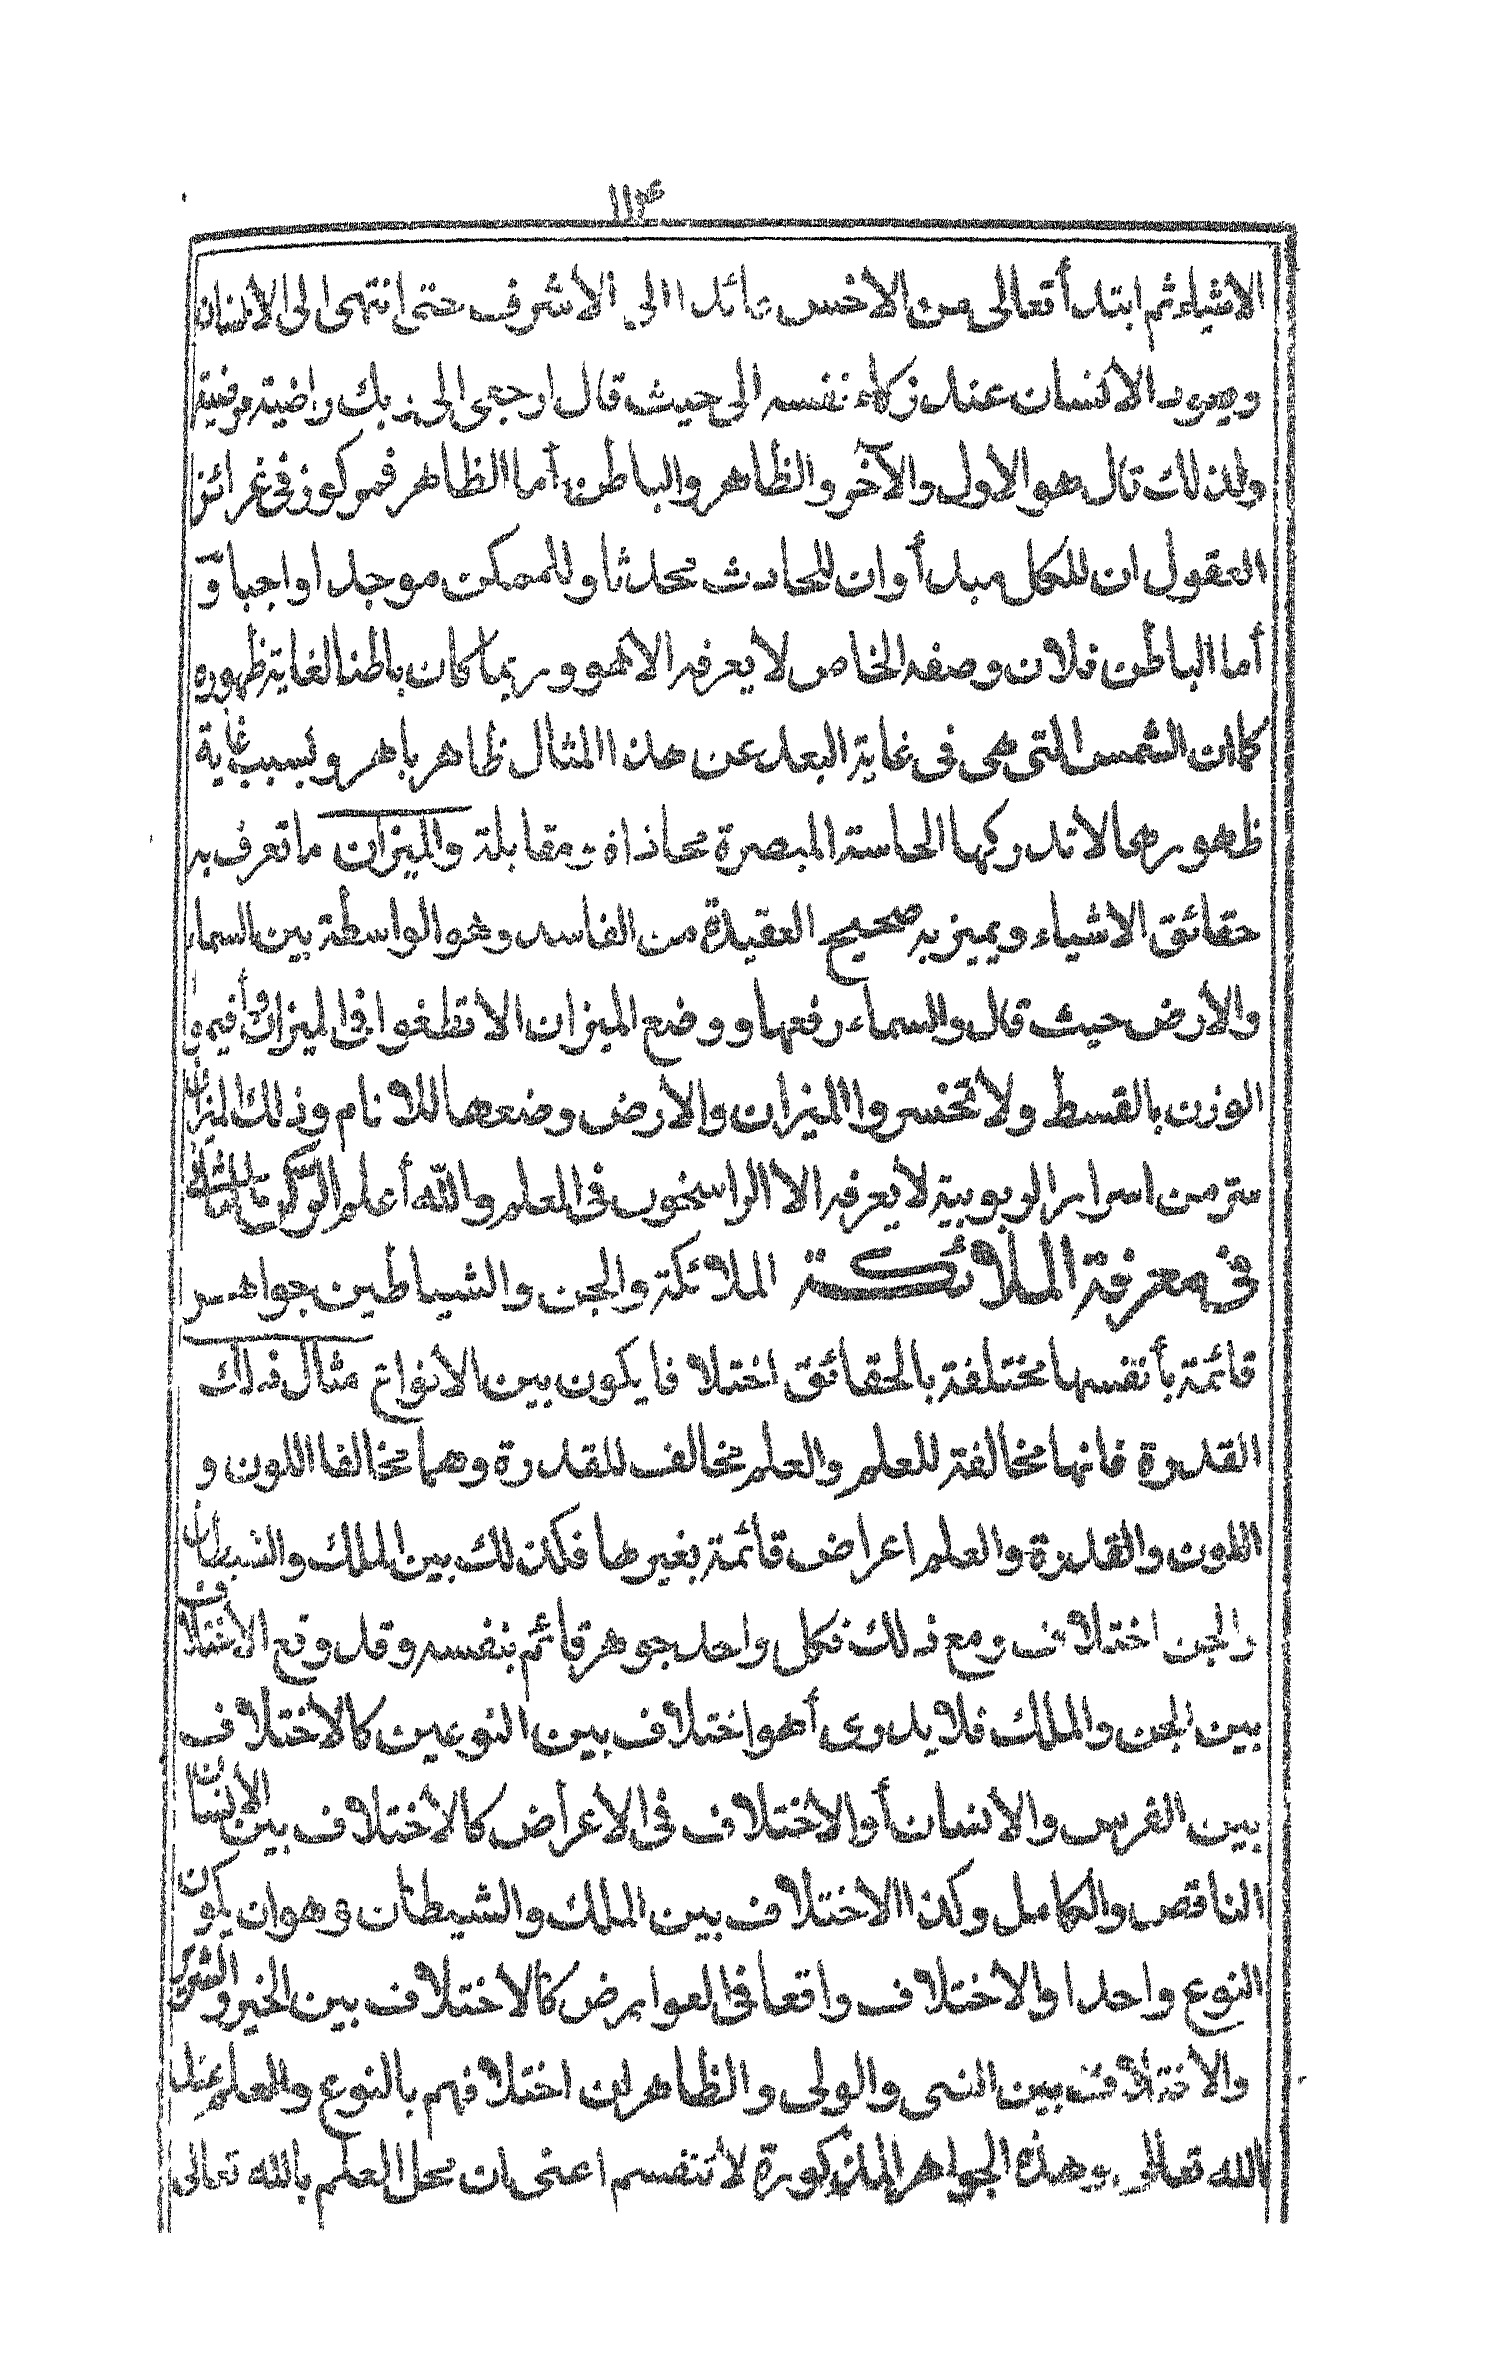 ١١٤
الاشياء ثم ابتدأ تعالى من الأخس عائدا الى الأشرف حتى انتهى الى الأنسان
ويعود الانسان عند زكاء نفسه الى حيث قال ارجعى الى ربك راضية مرضية
ولذلك قال هو الأول والآخر والظاهر والباطن أما الظاهر فمركوز فى غرائز
العقول ان للكل مبدأ وان للحادث محدثا وللممكن موجدا واجبا و
أما الباطن فلان وصفه الخاص لا يعرفه الا هو وربما كان باطنا لغاية ظهوره
كما ان الشمس التى هى فى غاية البعد عن هذا المثال ظاهر باهر وبسبب غاية
ظهورها لا تدركها الحاسة المبصرة محاذاة ومقابلة والميزان ما تعرف به
حقائق الاشياء ويميز به صحيح العقيدة من الفاسد وهو الواسطة بين السماء
والأرض حيث قال والسماء رفعها ووضع الميزان الا تطغوا فى الميزان وأقيموا
الوزن بالقسط ولا تخسروا الميزان والأرض وضعها للانام وذلك الميزان
سر من اسرار الربوبية لا يعرفه الا الراسخون فى العلم والله أعلم الركن الثانى
فى معرفة الملائكة الملائكة والجن والشياطين جواهر
قائمة بأنفسها مختلفة بالحقائق اختلافا يكون بين الأنواع مثال ذلك
القدرة فانها مخالفة للعلم والعلم مخالف للقدرة وهما مخالفا اللون و
اللون والقدرة والعلم اعراض قائمة بغيرها فكذلك بين الملك والشيطان
والجن اختلاف ومع ذلك فكل واحد جوهر قائم بنفسه وقد وقع الأختلاف
بين الجن والملك فلا يدرى أهو اختلاف بين النوعين كالاختلاف
بين الفرس والأنسان أو الأختلاف فى الأعراض كالأختلاف بين الأنسان
الناقص والكامل وكذا الاختلاف بين الملك والشيطان وهو ان يكون
النوع واحدا والاختلاف واقعا فى العوارض كالاختلاف بين الخير والشرير
والأختلاف بين النبى والولى والظاهر ان اختلافهم بالنوع والعلم عند
الله تعالى وهذه الجواهر المذكورة لا تنقسم اعنى ان محل العلم بالله تعالى